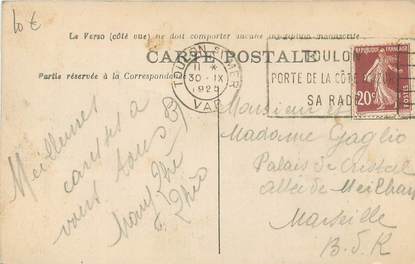 10 €
Le Verso (côté vue) ne doit comporter aucune inscription manuscrite
CARTE POSTALE
Partie réservée à la Correspondance
TOULON S. MER
11 *
30 - IX
1925
VAR
TOULON
PORTE DE LA CÔTE D'AZUR
SA RADE
RÉPUBLIQUE FRANÇAISE
20c
POSTES
Meilleures
caresses à
vous tous
Monsieur
Madame Gaglio
Palais de Cristal
allée de Meilhan
Marseille
B.d.R